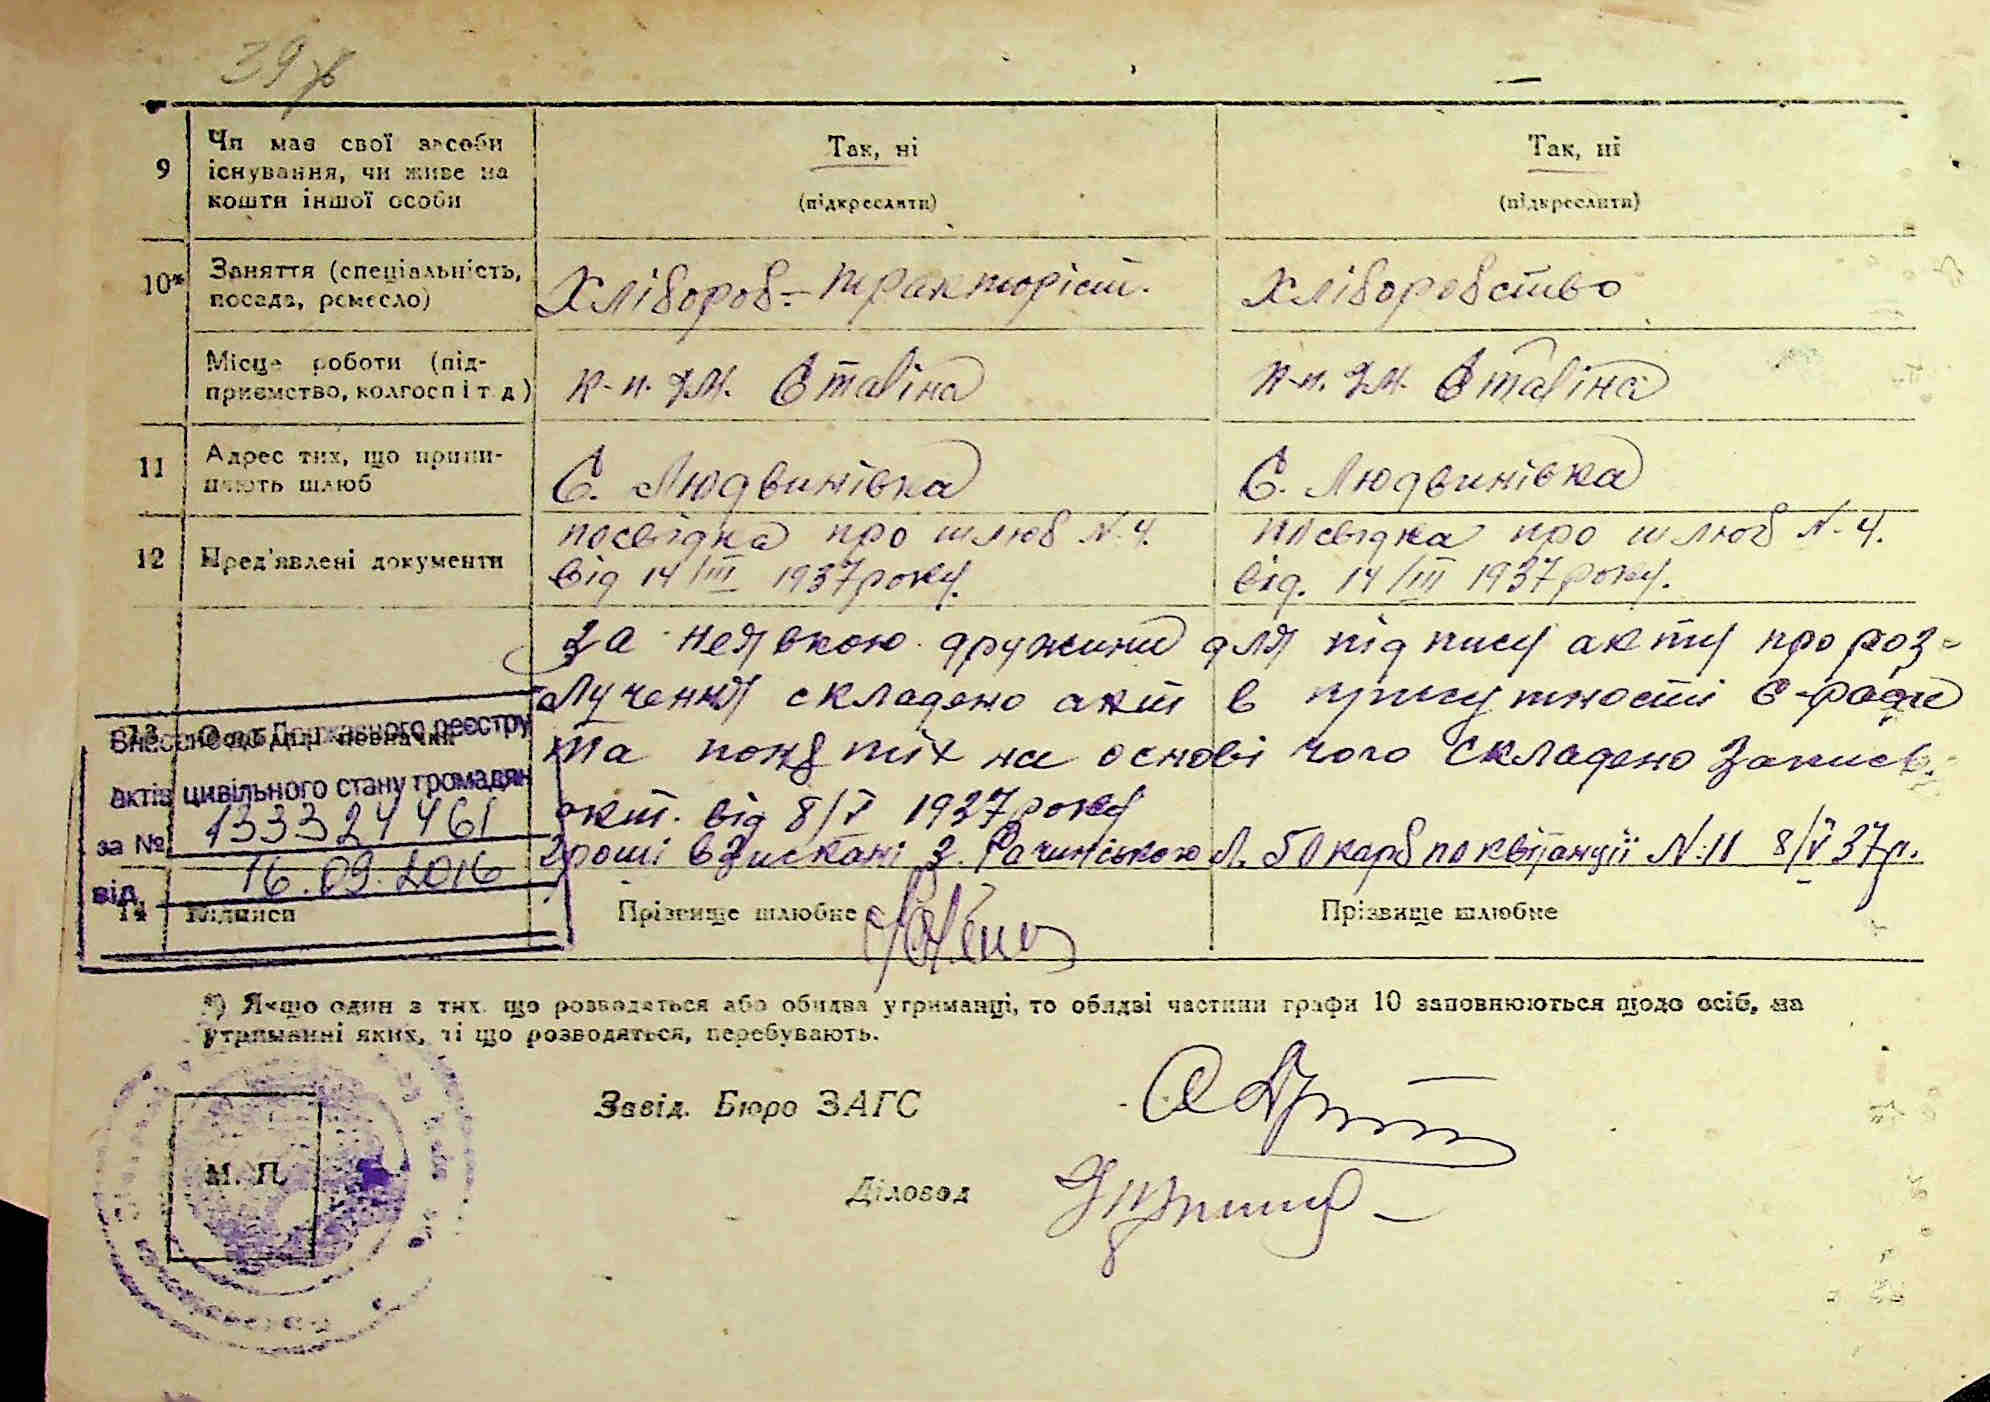 39
9 Чи має свої засоби існування, чи живе на кошти іншої особи
Так, ні
(підкреслити)
Так, ні
(підкреслити)
10* Заняття (спеціальність, посада, ремесло)
Хлібороб-тракторіст.
Хліборобство
Місце роботи (підприємство, колгосп і т. д)
к-п. ім. Сталіна
к-п. ім. Сталіна
11 Адрес тих, що припиняють шлюб
С. Людвинівка
С. Людвинівка
12 Пред'явлені документи
посвідка про шлюб N. 4.
від 14/III 1937 року.
посвідка про шлюб N. 4.
від. 14/III 1937 року.
за неявкою дружини для підпису акту про роз-
лучення складено акт в присутності с-ради
та понятіх на основі чого складено Запись.
акт. від 8/V 1937 року
Гроші взискані з Рачинською Л. 50 карб по квітанції N. 11 8/V 37 р.
13 Особливі позначки
Внесено до Державного реєстру
актів цивільного стану громадян
за № 133324461
від 16.09.2016
14 Підписи
Прізвище шлюбне
Прізвище шлюбне
*) Якщо один з тих, що розводяться або обидва утриманці, то обидві частини графи 10 заповнюються щодо осіб, на
утриманні яких, ті що розводяться, перебувають.
Завід. Бюро ЗАГС
М. П.
Діловод